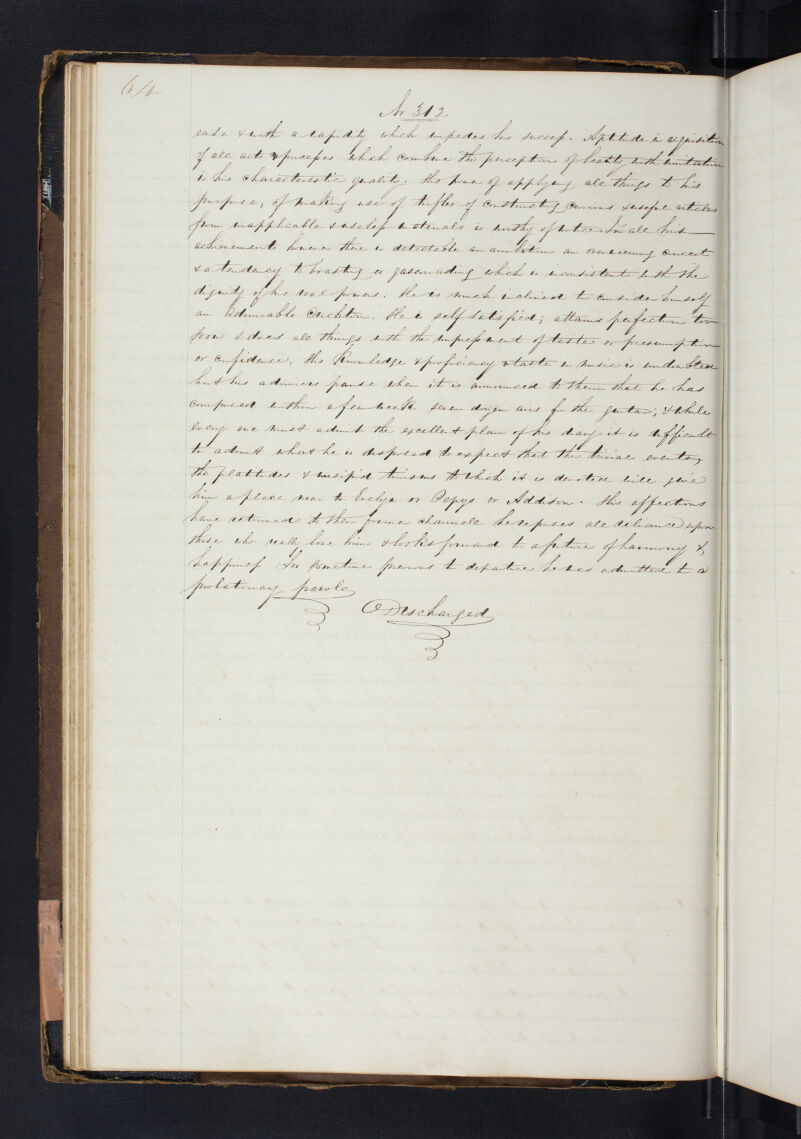 64
No 312
ease & with a rapidity which impedes his success. Aptitude in acquisition
of all arts & processes which combine the perception of beauty with imitation
is his characteristic quality. His power of applying all things to his
purpose, of making use of trifles of constructing curious & useful articles
from inapplicable & useless materials is worthy of notice. In all his
achievements however there is detectable an ambition an overweening conceit
& a tendency to boasting or gasconading which is inconsistent with the
dignity of his real powers. He is much inclined to consider himself
an Admirable Crichton. He is self satisfied; attains perfection too
soon & does all things with the impediment of taste or presumption
or confidence. His Knowledge & proficiency & taste in music is undoubted
but his admirers pause when it is announced to them that he has
composed within a few weeks seven dozen airs for the guitar; & while
every one must admit the excellent plan of his diary it is difficult
to admit what he is disposed to expect that the trivial events,
the platitudes & insipid truisms to which it is devoted will give
him a place near to Evelyn or Pepys or Addison. His affections
have returned to their former channels he reposes all reliance upon
those who really love him & looks forward to a future of harmony &
happiness. For sometime previous to departure he was admitted to a
probationary parole
Discharged